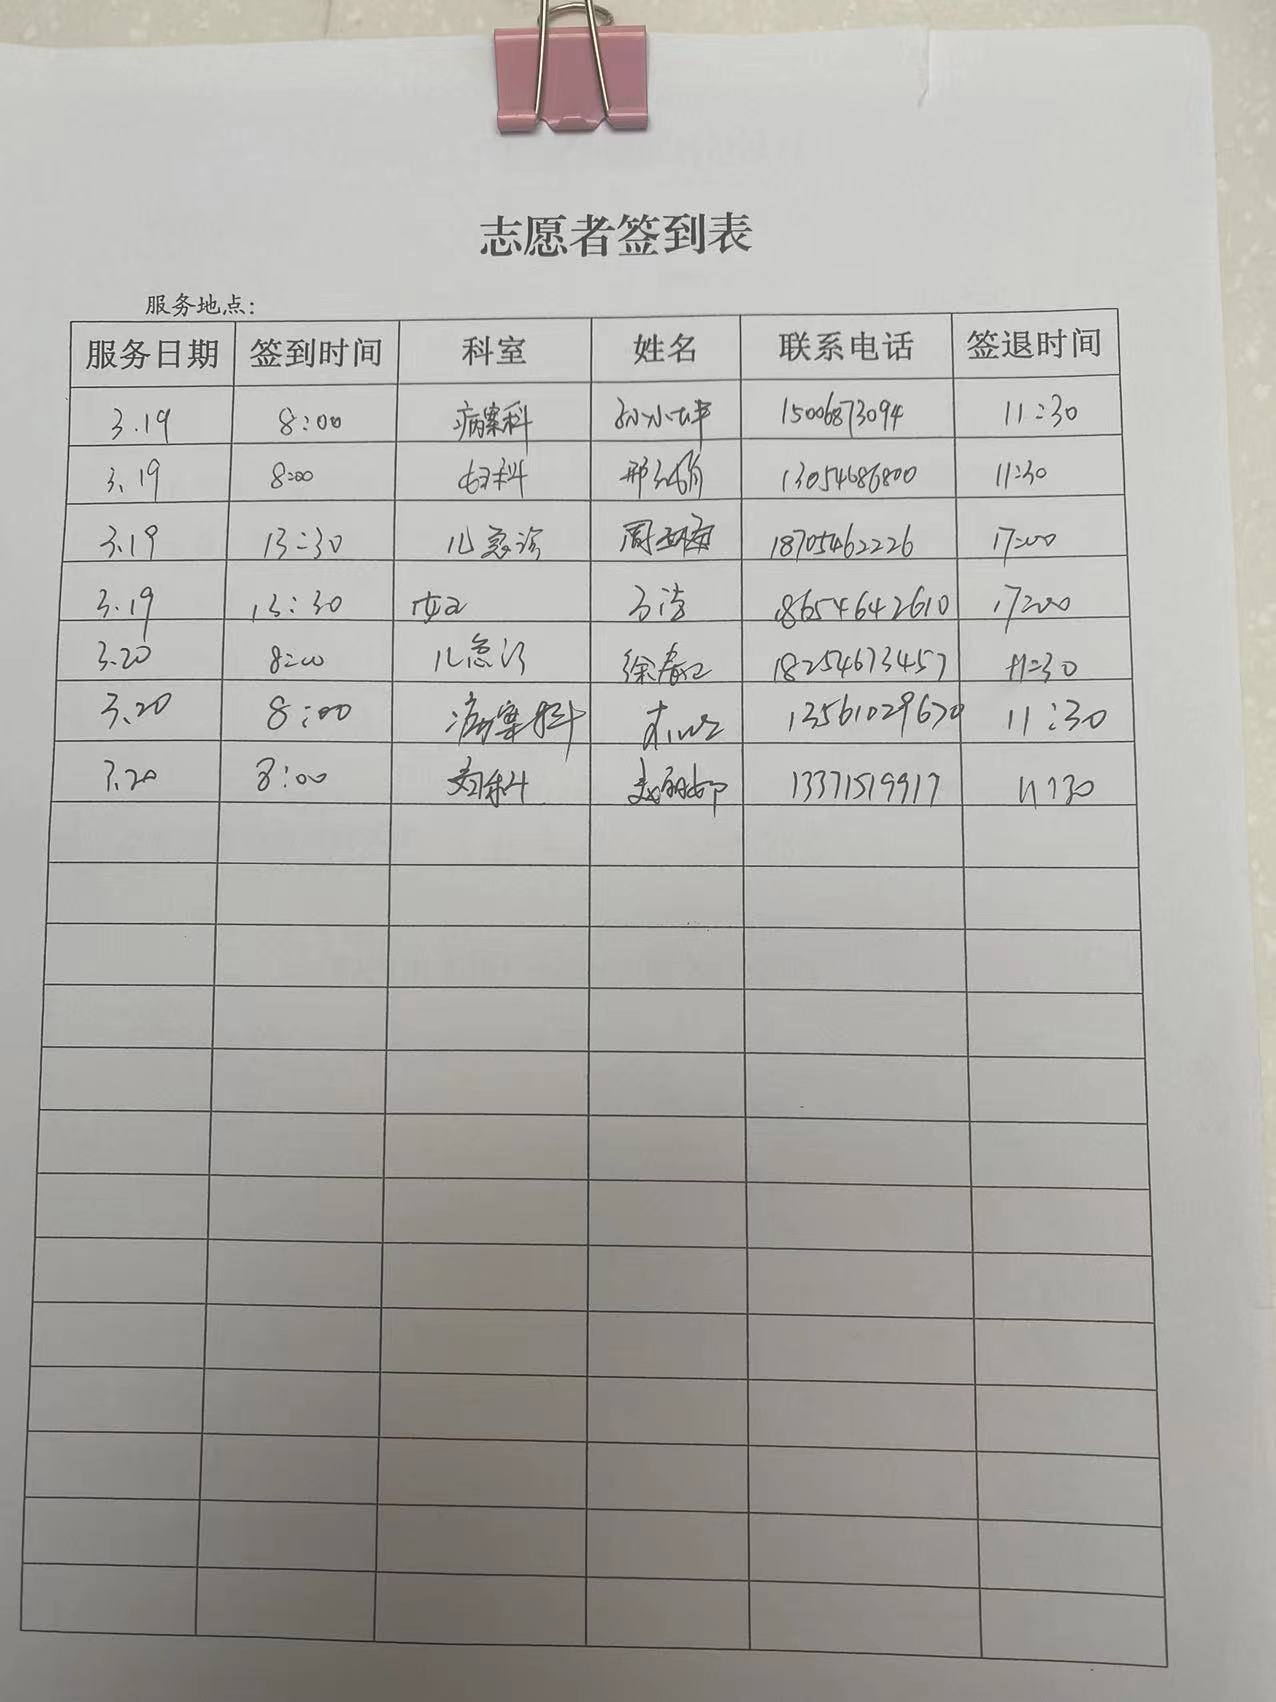 志愿者签到表
服务地点:
服务日期 签到时间 科室 姓名 联系电话 签退时间
3.19 8:00 病案科 15006873094 11:30
3.19 8:00 妇科 13054686800 11:30
3.19 13:30 儿急诊 18705462226 17:00
3.19 13:30 18654642610 17:00
3.20 8:00 儿急诊 徐春江 18254673457 11:30
3.20 8:00 病案科 13561029670 11:30
3.20 8:00 妇科 13371519917 11:30